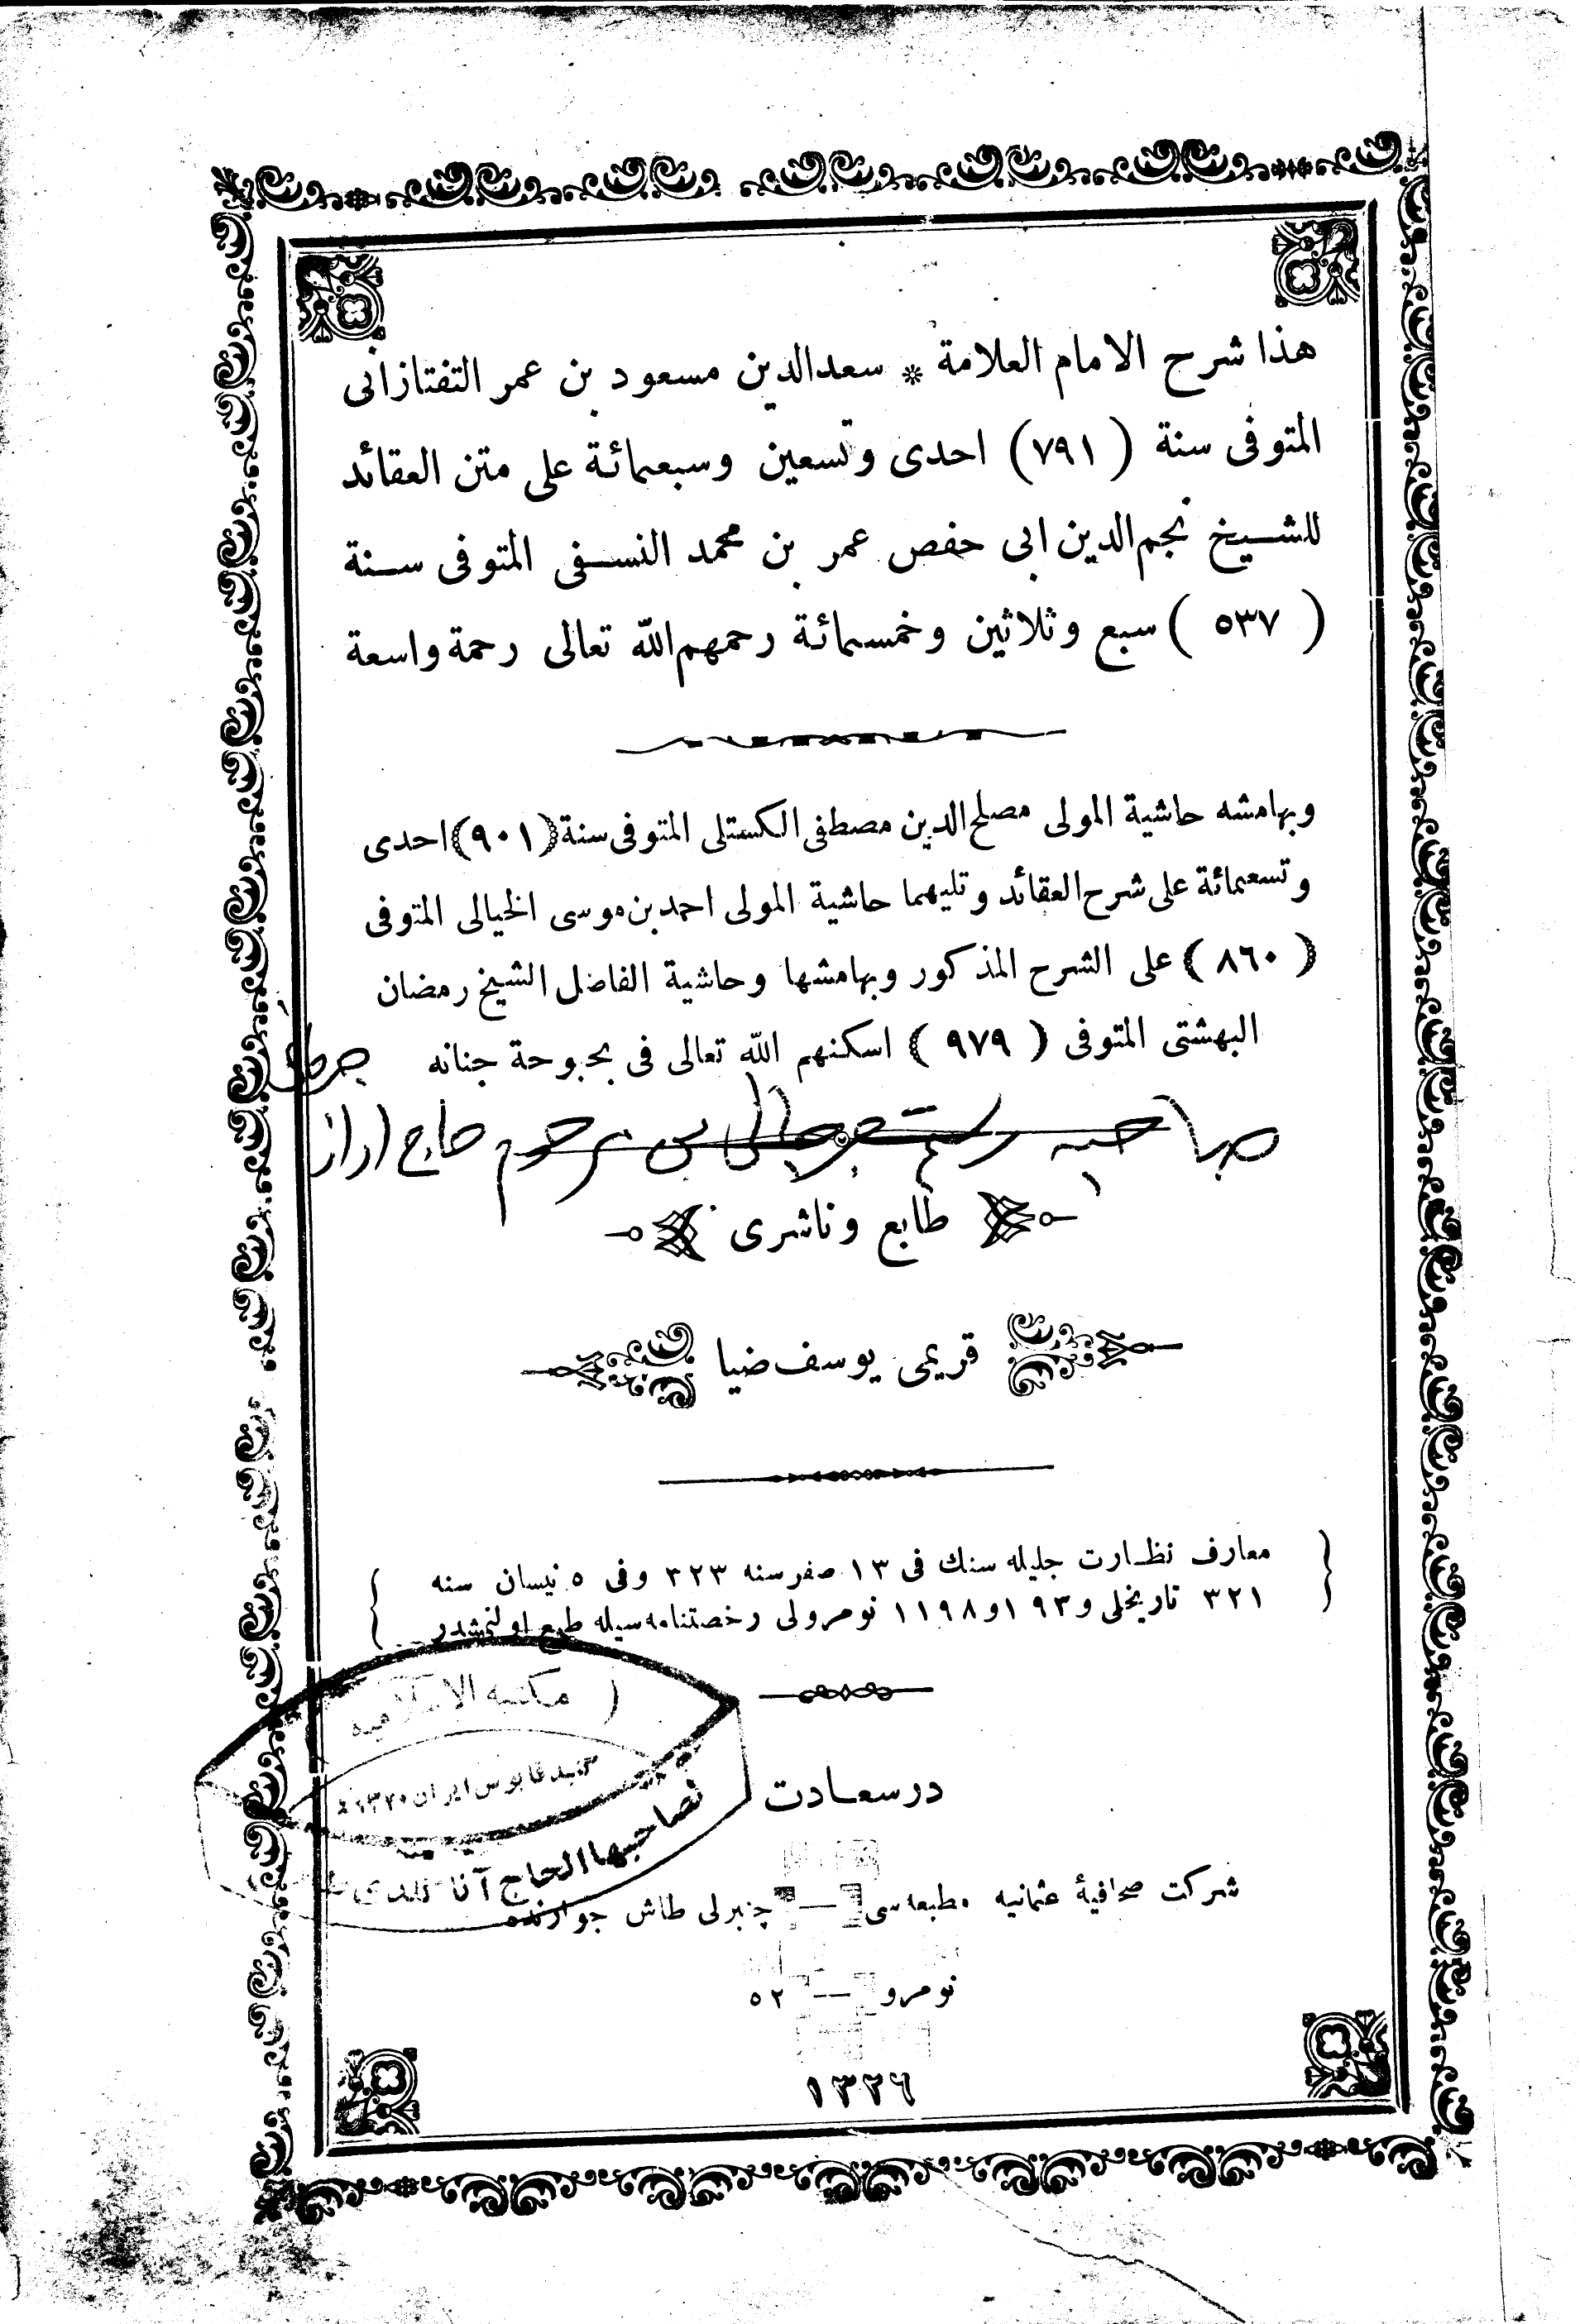 هذا شرح الامام العلامة * سعدالدين مسعود بن عمر التفتازانى
المتوفى سنة ( ٧٩١ ) احدى وتسعين وسبعمائة على متن العقائد
للشيخ نجم الدين ابى حفص عمر بن محمد النسفى المتوفى سنة
( ٥٣٧ ) سبع وثلاثين وخمسمائة رحمهم الله تعالى رحمة واسعة
وبهامشه حاشية المولى مصلح الدين مصطفى الكستلى المتوفى سنة (٩٠١) احدى
وتسعمائة على شرح العقائد وتليهما حاشية المولى احمد بن موسى الخيالى المتوفى
( ٨٦٠ ) على الشرح المذكور وبهامشها وحاشية الفاضل الشيخ رمضان
البهشتى المتوفى ( ٩٧٩ ) اسكنهم الله تعالى فى بحبوحة جنانه
طابع وناشرى
قريمى يوسف ضيا
معارف نظارت جليله سنك فى ١٣ صفر سنه ٣٢٣ وفى ٥ نيسان سنه
٣٢١ تاريخلى و ١٩٣ و ١١٩٨ نومرولى رخصتنامه سيله طبع اولنمشدر
مكتبه الاسلاميه
گنبد قابوس ايران
لصاحبها الحاج آنا
درسعادت
شركت صحافيۀ عثمانيه مطبعه سى — چنبرلى طاش جوارنده
نومرو — ٥٢
١٣٢٦